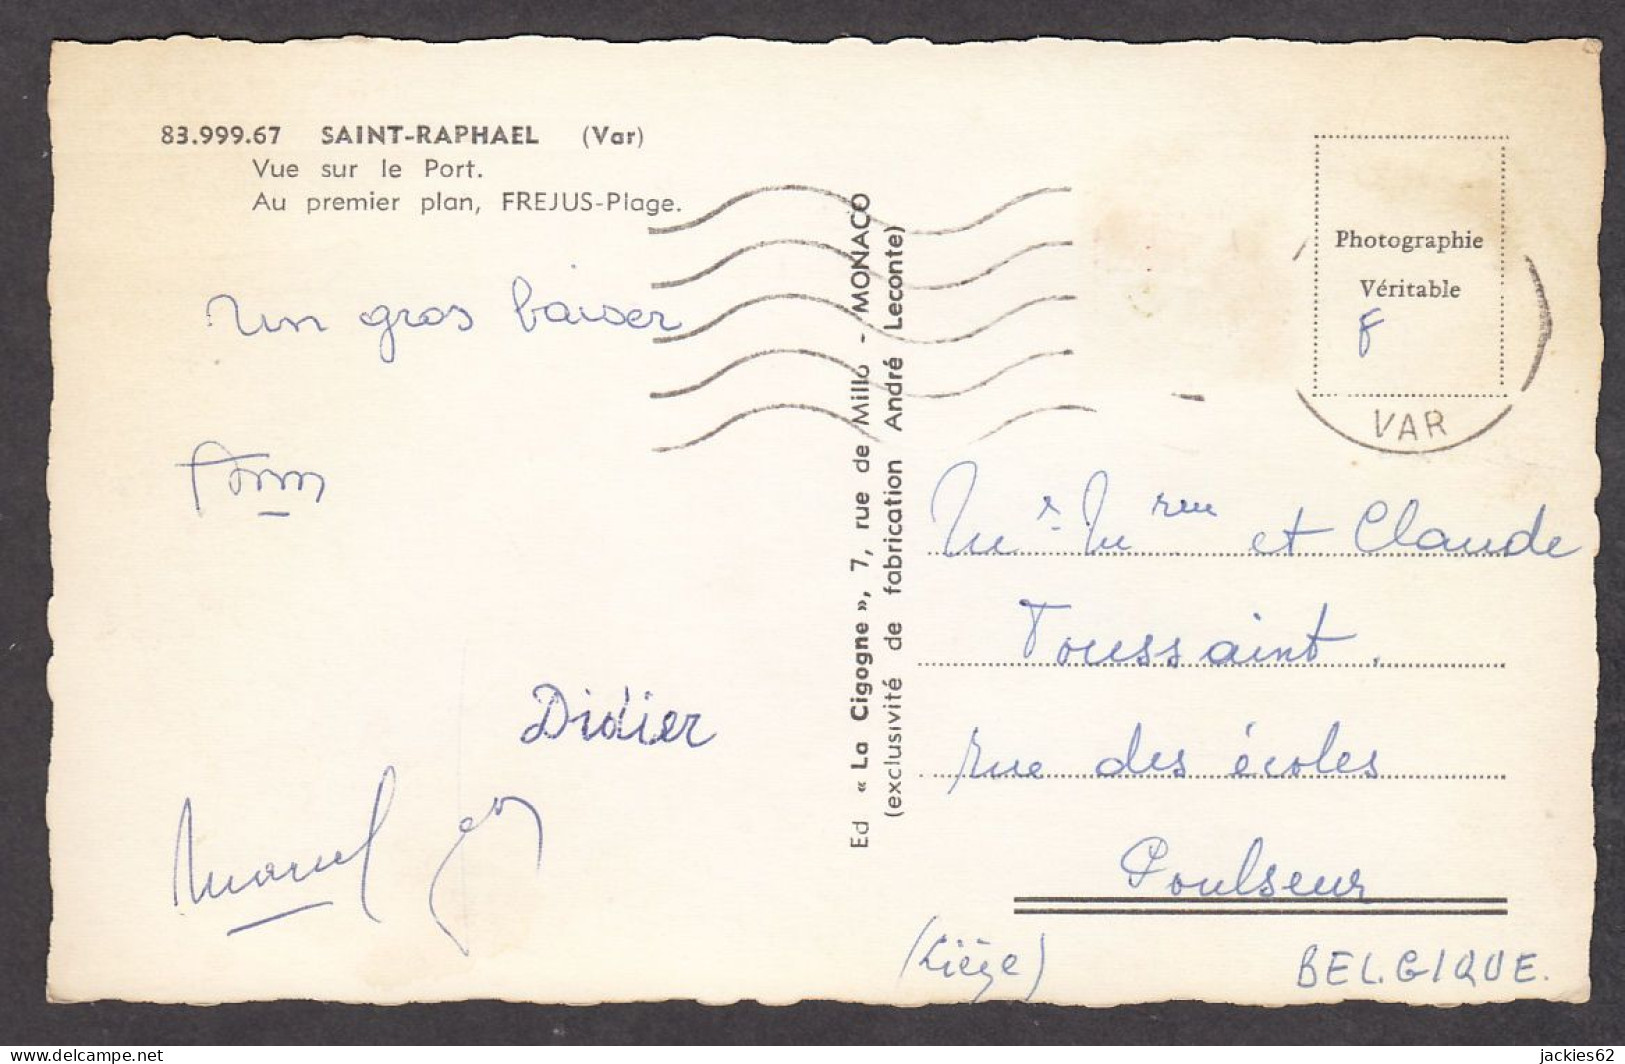 83.999.67 SAINT-RAPHAEL (Var)
Vue sur le Port.
Au premier plan, FREJUS-Plage.
Un gros baiser
Didier
Marcel
Ed « La Cigogne », 7, rue de Millo - MONACO
(exclusivité de fabrication André Leconte)
Photographie
Véritable
F
VAR
Mr Mme et Claude
Toussaint.
rue des écoles
Poulseur
(Liège)
BELGIQUE.
delcampe.net
jackies62